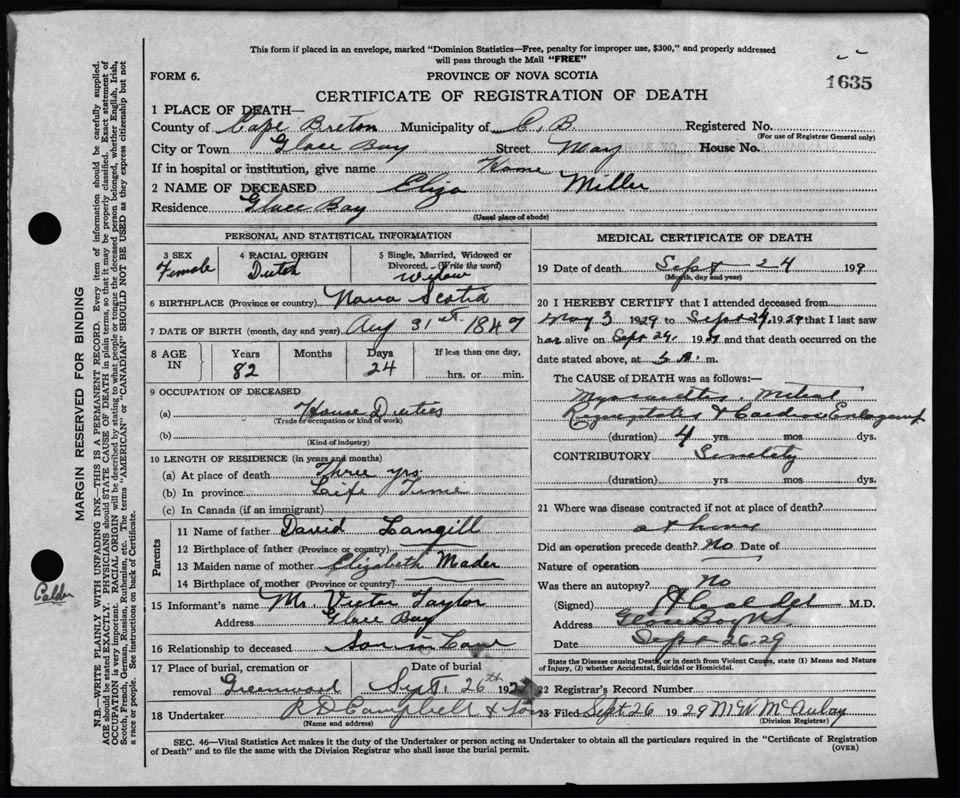 This form if placed in an envelope, marked "Dominion Statistics—Free, penalty for improper use, $300," and properly addressed
will pass through the Mail "FREE"
FORM 6.
PROVINCE OF NOVA SCOTIA
1635
CERTIFICATE OF REGISTRATION OF DEATH
1 PLACE OF DEATH—
County of Cape Breton Municipality of C. B. Registered No.
(For use of Registrar General only)
City or Town Glace Bay Street May House No.
If in hospital or institution, give name Home
2 NAME OF DECEASED Eliza Miller
Residence Glace Bay
(Usual place of abode)
PERSONAL AND STATISTICAL INFORMATION
3 SEX 4 RACIAL ORIGIN 5 Single, Married, Widowed or
Divorced.—(Write the word)
Female Dutch Widow
6 BIRTHPLACE (Province or country) Nova Scotia
7 DATE OF BIRTH (month, day and year) Aug 31st. 1847
8 AGE IN Years Months Days If less than one day,
82 24 hrs. or min.
9 OCCUPATION OF DECEASED
(a) House Duties
(Trade or occupation or kind of work)
(b)
(Kind of industry)
10 LENGTH OF RESIDENCE (in years and months)
(a) At place of death Three yrs.
(b) In province Life Time
(c) In Canada (if an immigrant)
Parents
11 Name of father David Langill
12 Birthplace of father (Province or country)
13 Maiden name of mother Elizabeth Mader
14 Birthplace of mother (Province or country)
15 Informant's name Mr. Victor Taylor
Address Glace Bay
16 Relationship to deceased Son in Law
17 Place of burial, cremation or Date of burial
removal Greenwood Sept. 26th 192
18 Undertaker R D Campbell & Son
(Name and address)
MEDICAL CERTIFICATE OF DEATH
19 Date of death Sept 24 192
(Month, day and year)
20 I HEREBY CERTIFY that I attended deceased from
May 3 1929 to Sept 24, 1929 that I last saw
her alive on Sept 24, 1929 and that death occurred on the
date stated above, at m.
The CAUSE OF DEATH was as follows:—
Myocarditis. Mitral
Regurgitation & Cardiac Enlargement
(duration) 4 yrs. mos. dys.
CONTRIBUTORY Senility
(duration) yrs. mos. dys.
21 Where was disease contracted if not at place of death?
at home
Did an operation precede death? No Date of
Nature of operation
Was there an autopsy? No
(Signed) M.D.
Address Glace Bay NS
Date Sept 26-29
State the Disease causing Death, or in death from Violent Causes, state (1) Means and Nature
of Injury, (2) whether Accidental, Suicidal or Homicidal.
22 Registrar's Record Number
23 Filed Sept 26 1929
(Division Registrar)
SEC. 46—Vital Statistics Act makes it the duty of the Undertaker or person acting as Undertaker to obtain all the particulars required in the "Certificate of Registration
of Death" and to file the same with the Division Registrar who shall issue the burial permit.
(OVER)
MARGIN RESERVED FOR BINDING
N.B.—WRITE PLAINLY WITH UNFADING INK—THIS IS A PERMANENT RECORD. Every item of information should be carefully supplied.
AGE should be stated EXACTLY. PHYSICIANS should STATE CAUSE OF DEATH in plain terms, so that it may be properly classified. Exact statement of
OCCUPATION is very important. RACIAL ORIGIN will be described by stating to what people or tongue the deceased person belonged, whether English, Irish,
Scotch, French, German, Russian, Ruthenian, etc. The terms "AMERICAN" or "CANADIAN" SHOULD NOT BE USED as they express citizenship but not
a race or people. See instructions on back of Certificate.